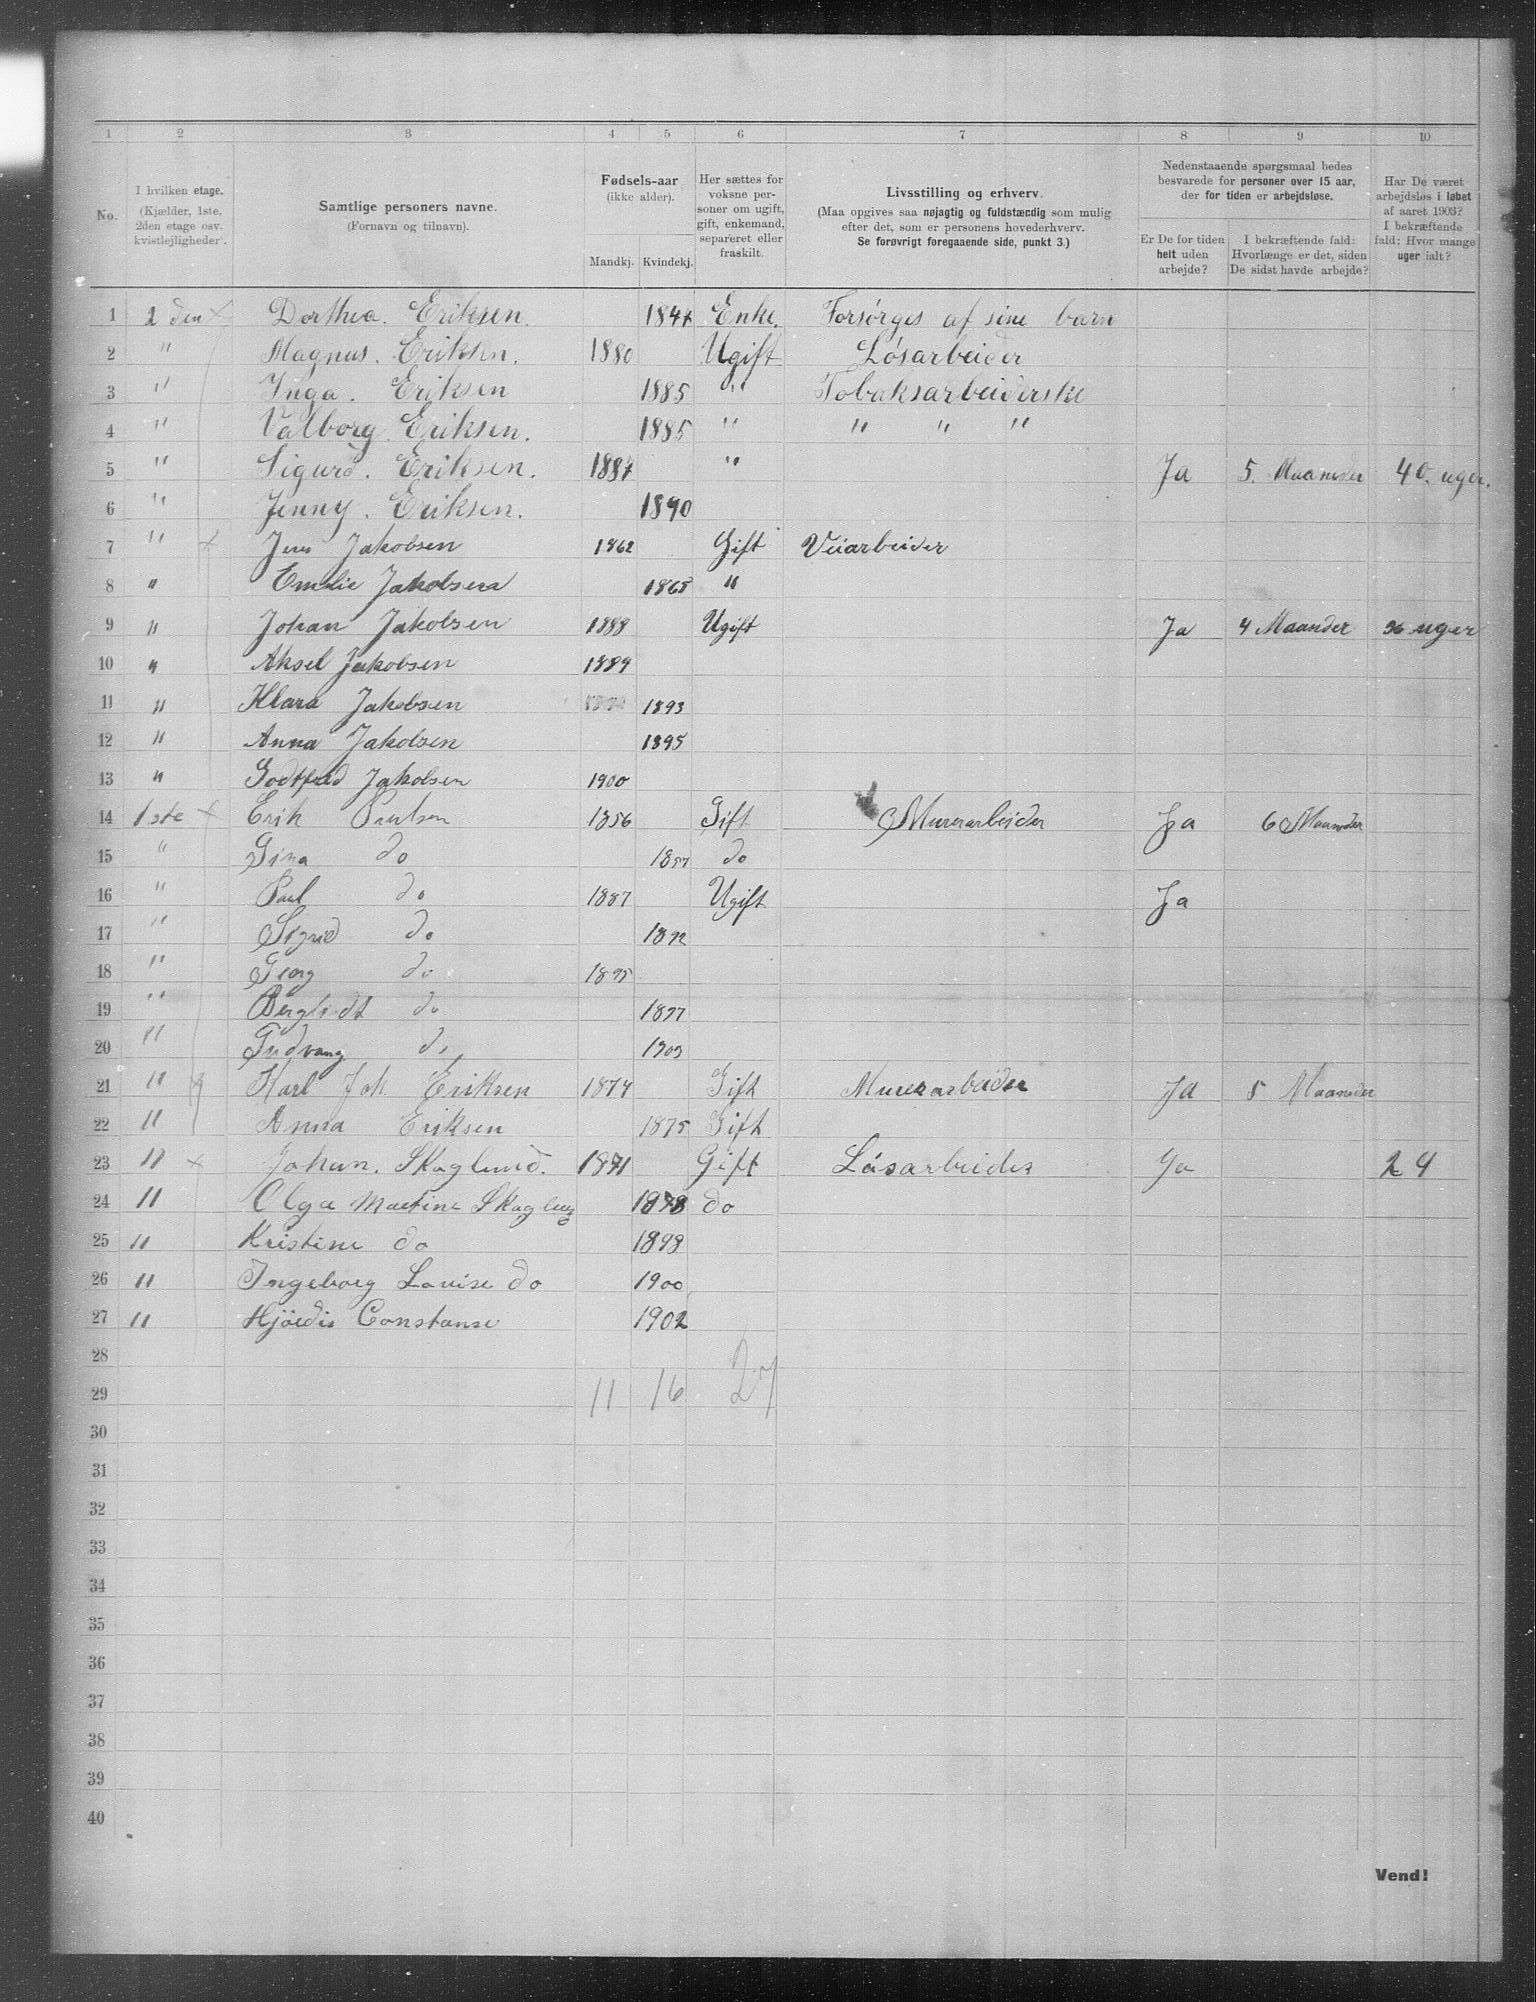 1 2 3 4 5 6 7 8 9 10
No.
I hvilken etage.
(Kjælder, 1ste,
2den etage osv.
kvistlejligheder).
Samtlige personers navne.
(Fornavn og tilnavn).
Fødsels-aar
(ikke alder).
Mandkj. Kvindekj.
Her sættes for
voksne per-
soner om ugift,
gift, enkemand,
separeret eller
fraskilt.
Livsstilling og erhverv.
(Maa opgives saa nøjagtig og fuldstændig som mulig
efter det, som er personens hovederhverv.
Se forøvrigt foregaaende side, punkt 3.)
Nedenstaaende spørgsmaal bedes
besvarede for personer over 15 aar,
der for tiden er arbejdsløse.
Er De for tiden
helt uden
arbejde?
I bekræftende fald:
Hvorlænge er det, siden
De sidst havde arbejde?
Har De været
arbejdsløs i løbet
af aaret 1903?
I bekræftende
fald: Hvor mange
uger ialt?
1 2 den × Dorthea. Eriksen. 1847 Enke. Forsørges af sine barn
2 " Magnus. Eriksen. 1880 Ugift Løsarbeider
3 " Inga. Eriksen 1885 " Tobaksarbeiderske
4 " Valborg. Eriksen. 1885 " " " "
5 " Sigurd. Eriksen. 1887 " Ja 5. Maaneder 40. uger.
6 " Jenny. Eriksen. 1890
7 " × Jens Jakobsen 1862 Gift Veiarbeider
8 " Emelie Jakobsen 1865 "
9 " Johan Jakobsen 1888 Ugift Ja 4 Maander 36 uger
10 " Aksel Jakobsen 1889
11 " Klara Jakobsen 1893
12 " Anna Jakobsen 1895
13 " Godtfred Jakobsen 1900
14 1 ste × Erik Paulsen 1856 Gift Murerarbeider Ja 6 Maaneder
15 " Gina do 1857 do
16 " Paul do 1887 Ugift Ja
17 " Sigrid do 1892
18 " Georg do 1895
19 " Bergliot do 1897
20 " Gudvang do 1903
21 " × Karl Joh Eriksen 1874 Gift Murerarbeider Ja 5 Maaneder
22 " Anna Eriksen 1875 Gift
23 " × Johan. Skoglund. 1871 Gift Løsarbeider Ja 24
24 " Olga Martine Skoglund 1878 do
25 " Kristine do 1898
26 " Ingeborg Lovise do 1900
27 " Hjördis Constanse 1902
28
29 11 16 27
30
31
32
33
34
35
36
37
38
39
40
Vend!